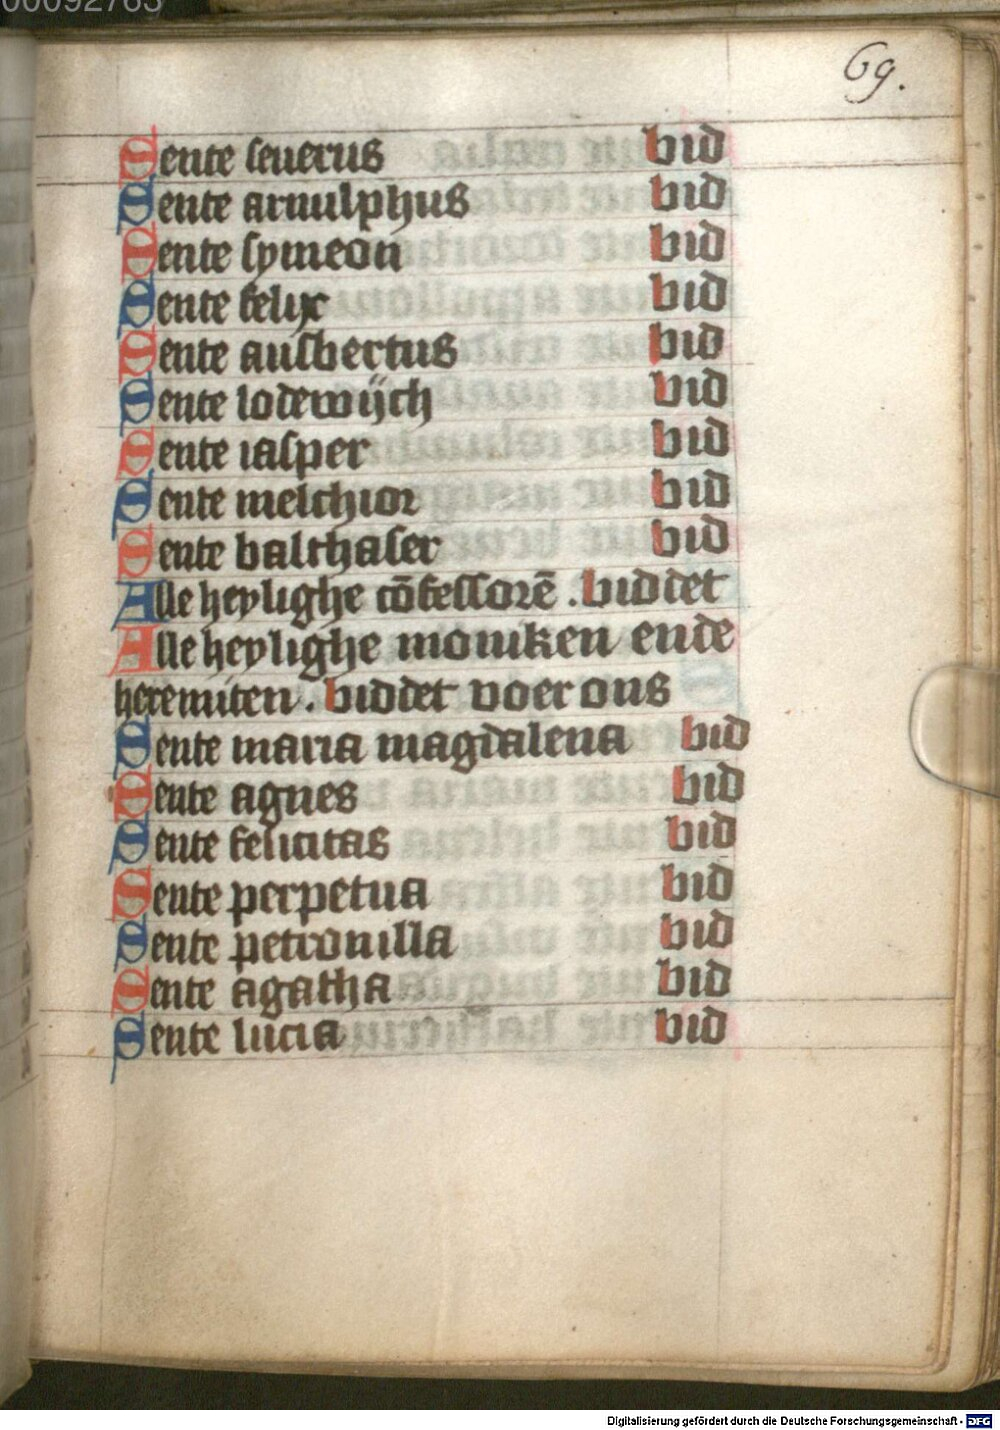 00092763
69.
Sente seuerus bid
Sente arnulphus bid
Sente symeon bid
Sente felix bid
Sente ausbertus bid
Sente lodewijch bid
Sente iasper bid
Sente melchior bid
Sente balthaser bid
Alle heylighe cōfessorē . biddet
Alle heylighe moniken ende
heremiten . biddet voer ons
Sente maria magdalena bid
Sente agnes bid
Sente felicitas bid
Sente perpetua bid
Sente petronilla bid
Sente agatha bid
Sente lucia bid
Digitalisierung gefördert durch die Deutsche Forschungsgemeinschaft - DFG